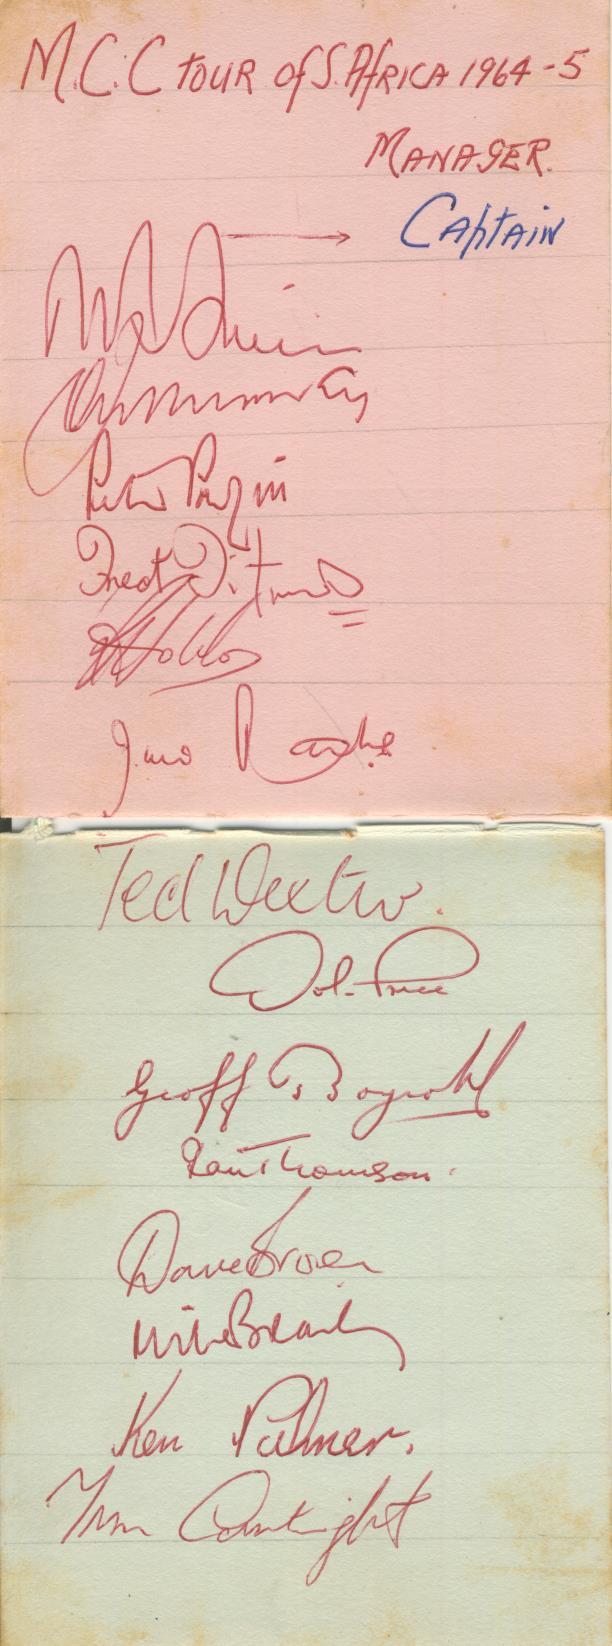 M.C.C TOUR of S. AFRICA 1964-5
MANAGER.
Captain
Peter Parfitt
Fred Titmus
Hobbs
Ted Dexter.
Price
Geoff Boycott
Ian Thomson.
Dave Brown
Mike Brearley
Ken Palmer.
Tom Cartwright